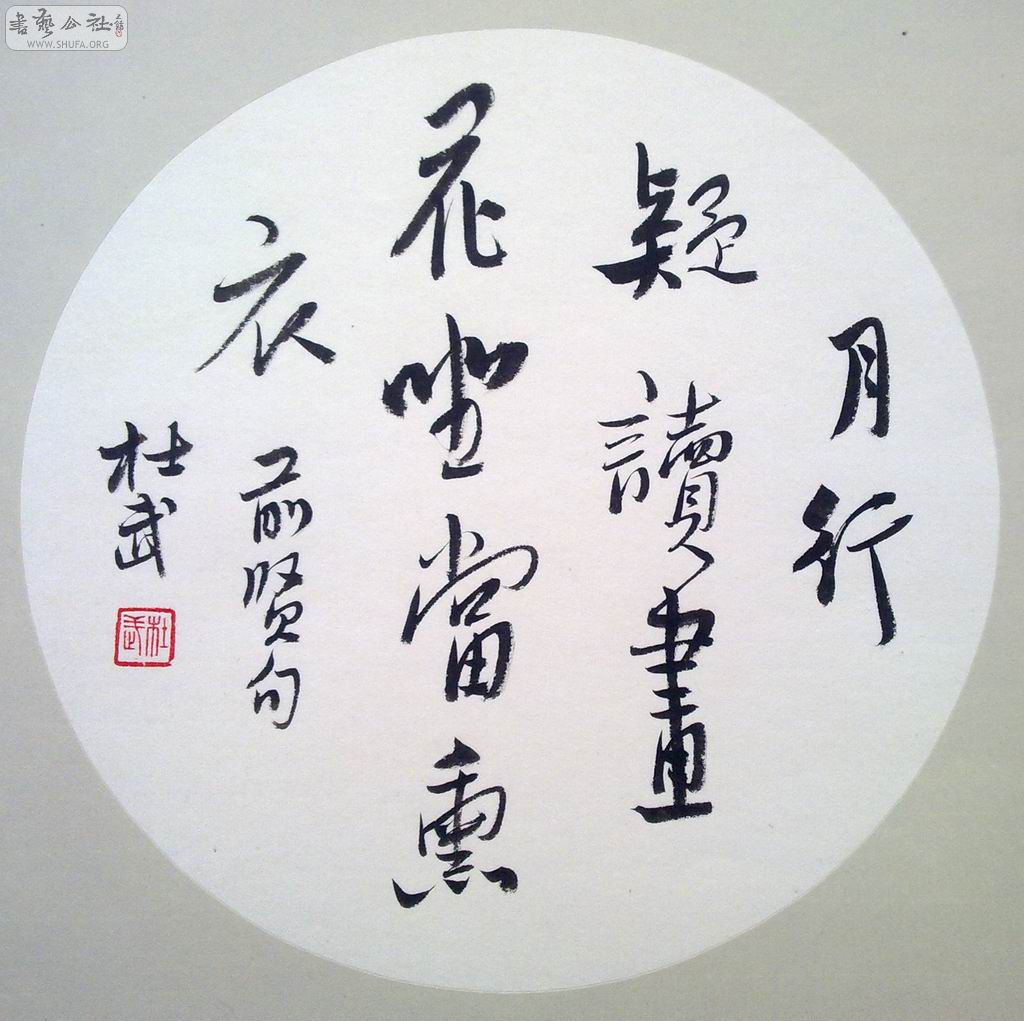 月行
疑讀畫
花坐當熏
衣 前賢句
杜武
杜武
書藝公社
WWW.SHUFA.ORG